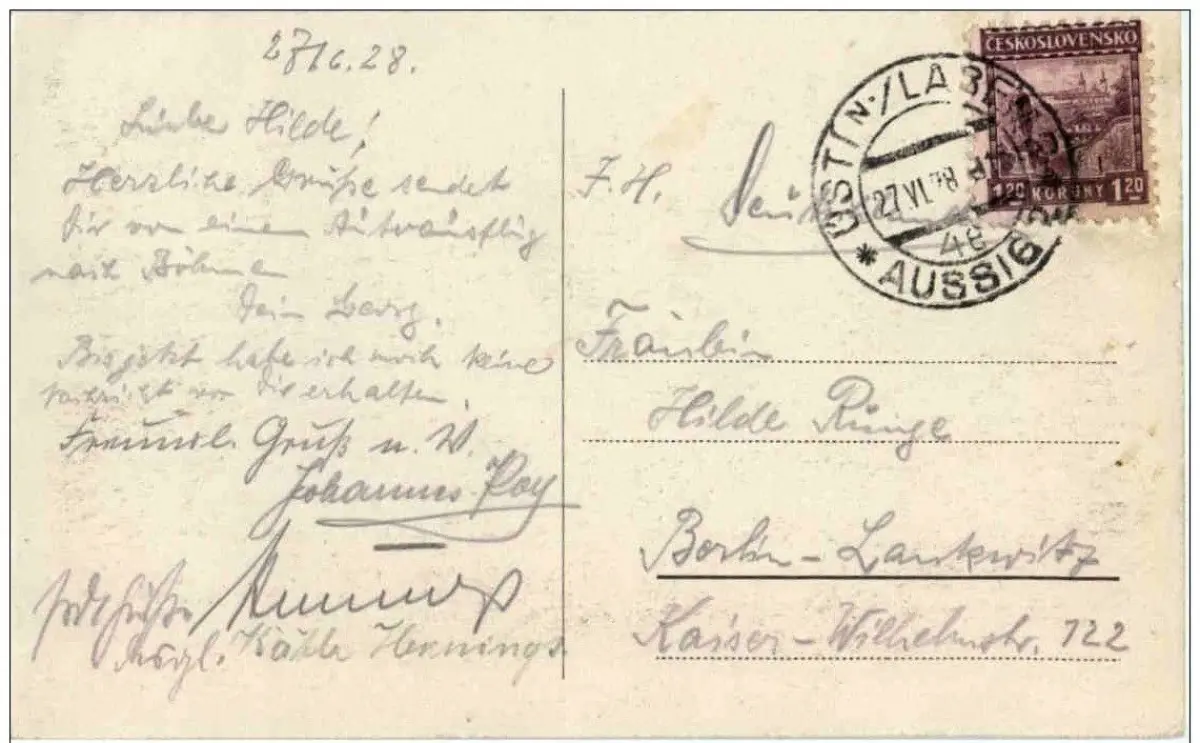 27/6.28.
Liebe Hilde!
Herzliche Grüße sendet
Dir von einem Autoausflug
nach Böhmen
Dein Georg.
Bis jetzt habe ich noch keine
Nachricht von Dir erhalten.
Freundl. Gruß u. W.
Johannes
Käthe Hennings.
ČESKOSLOVENSKO
1.20 KORUNY 1.20
ÚSTÍ N./LABEM
27 VI. 28
4e
* AUSSIG
F. H.
Fräulein
Hilde Runge
Berlin-Lankwitz
Kaiser-Wilhelmstr. 122